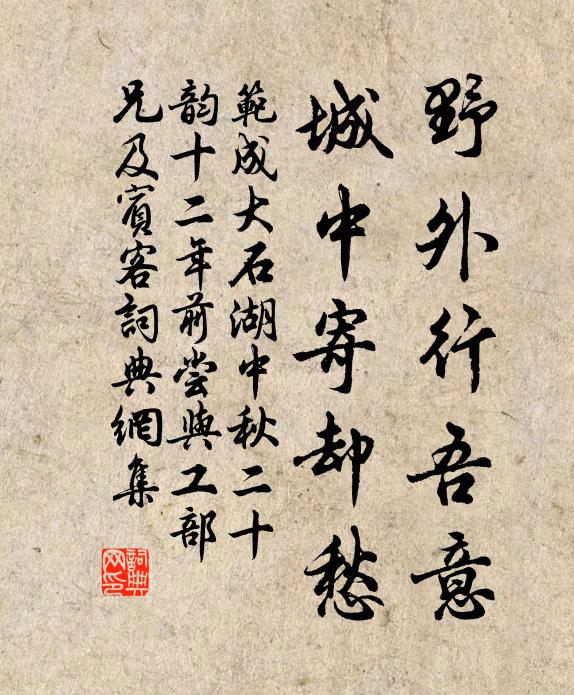 野外行吾意
城中寄却愁
範成大石湖中秋二十
韵十二年前尝與工部
兄及賓客詞典網集
詞典
网印